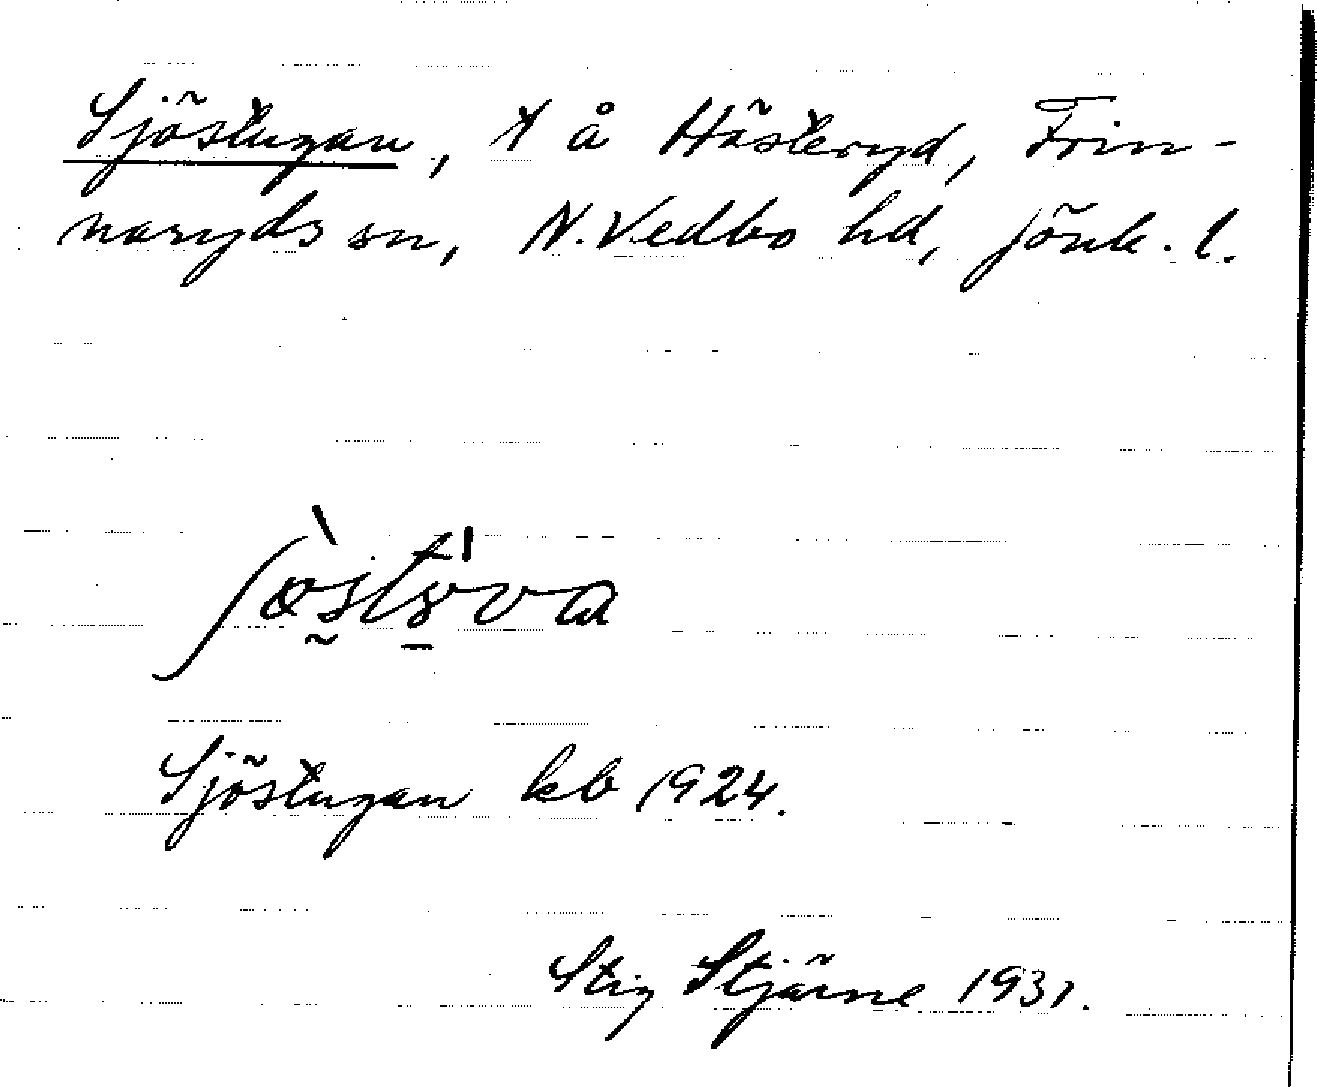 Sjöstugan, t å Hästeryd, Frin-
naryds sn, N. Vedbo hd, Jönk. l.
Sjöstugan kb 1924.
Stig Stjärne 1931.